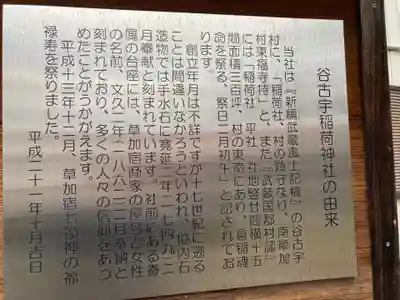 谷古宇稲荷神社の由来
当社は『新編武蔵風土記稿』の谷古宇
村に、「稲荷社、村の鎮守なり、南草加
村東福寺持」と、また『武蔵国郡村誌』
には「稲荷社、平社、社地竪廿間横十五
間面積三百坪、村の東南にあり、倉稲魂
命を祭る、祭日二月初午」と記されてお
ります。
創立年月は不詳ですが十七世紀に遡る
ことは間違いなかろうといわれ、境内石
造物では手水石に寛延二年(一七四九)二
月奉献と刻まれています。社前にある眷
属の台座には、草加宿商家の屋号と女性
の名前、文久二年(一八六二)二月奉納と
刻まれており、多くの人々の信仰をあつ
めたことがうかがえます。
平成十三年十二月、草加宿七福神の福
禄寿を祭りました。
平成二十一年十月吉日